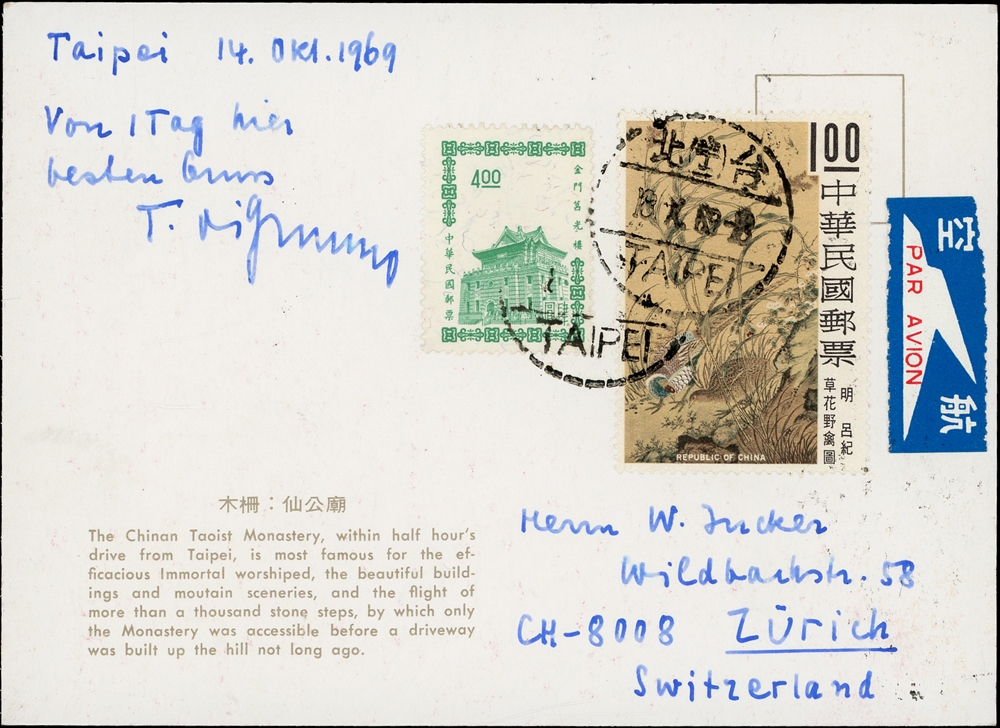 Taipei 14. Okt. 1969
Von 1 Tag hier
besten Gruss
T.
4.00
金門莒光樓
中華民國郵票
1.00
中華民國郵票
明 呂紀
草花野禽圖
REPUBLIC OF CHINA
台北
TAIPEI
TAIPEI
空航
PAR AVION
木柵：仙公廟
The Chinan Taoist Monastery, within half hour's
drive from Taipei, is most famous for the ef-
ficacious Immortal worshiped, the beautiful build-
ings and moutain sceneries, and the flight of
more than a thousand stone steps, by which only
the Monastery was accessible before a driveway
was built up the hill not long ago.
Herrn W. Jucker
Wildbachstr. 58
CH-8008 Zürich
Switzerland